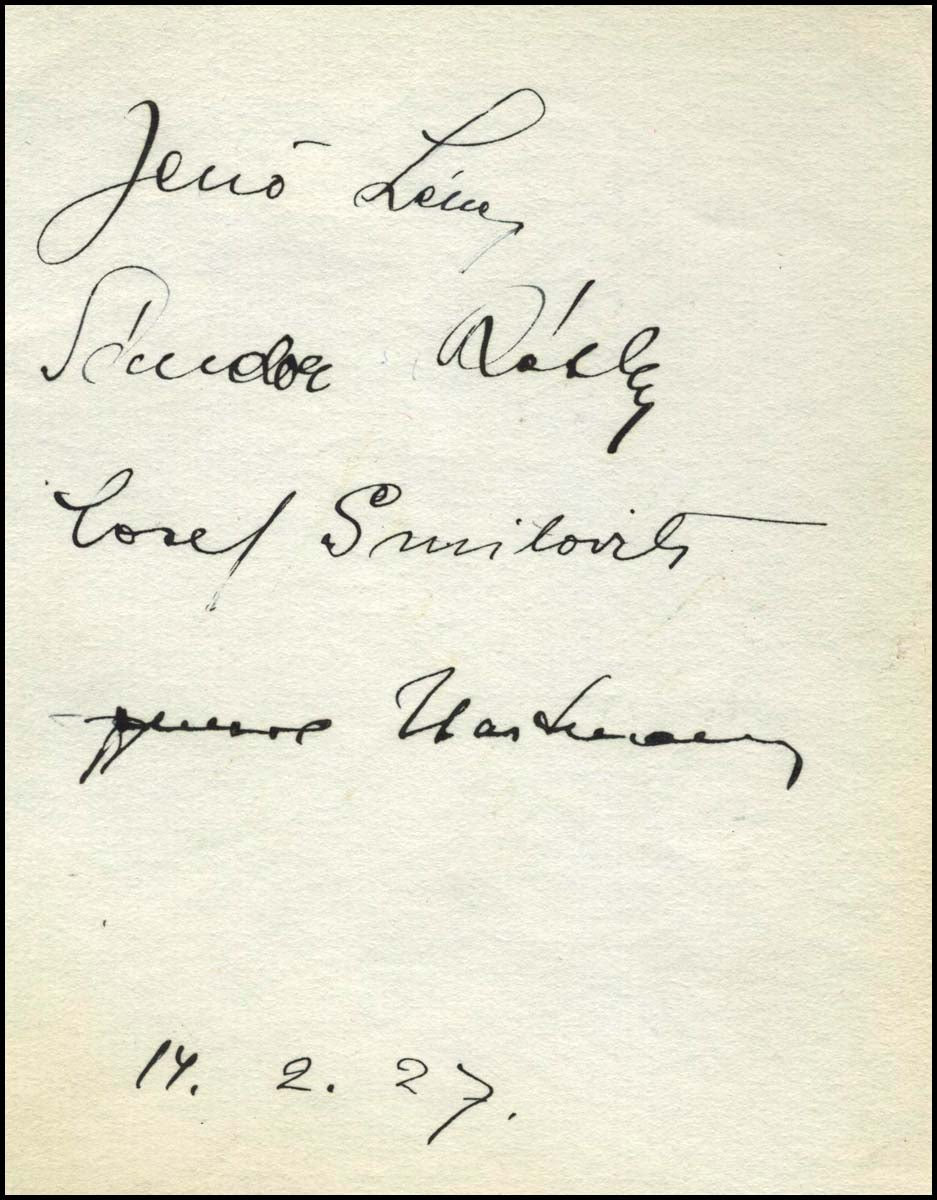 Jenő Léner
Sándor Róth
Josef Smilovits
Imre Hartmann
14. 2. 27.